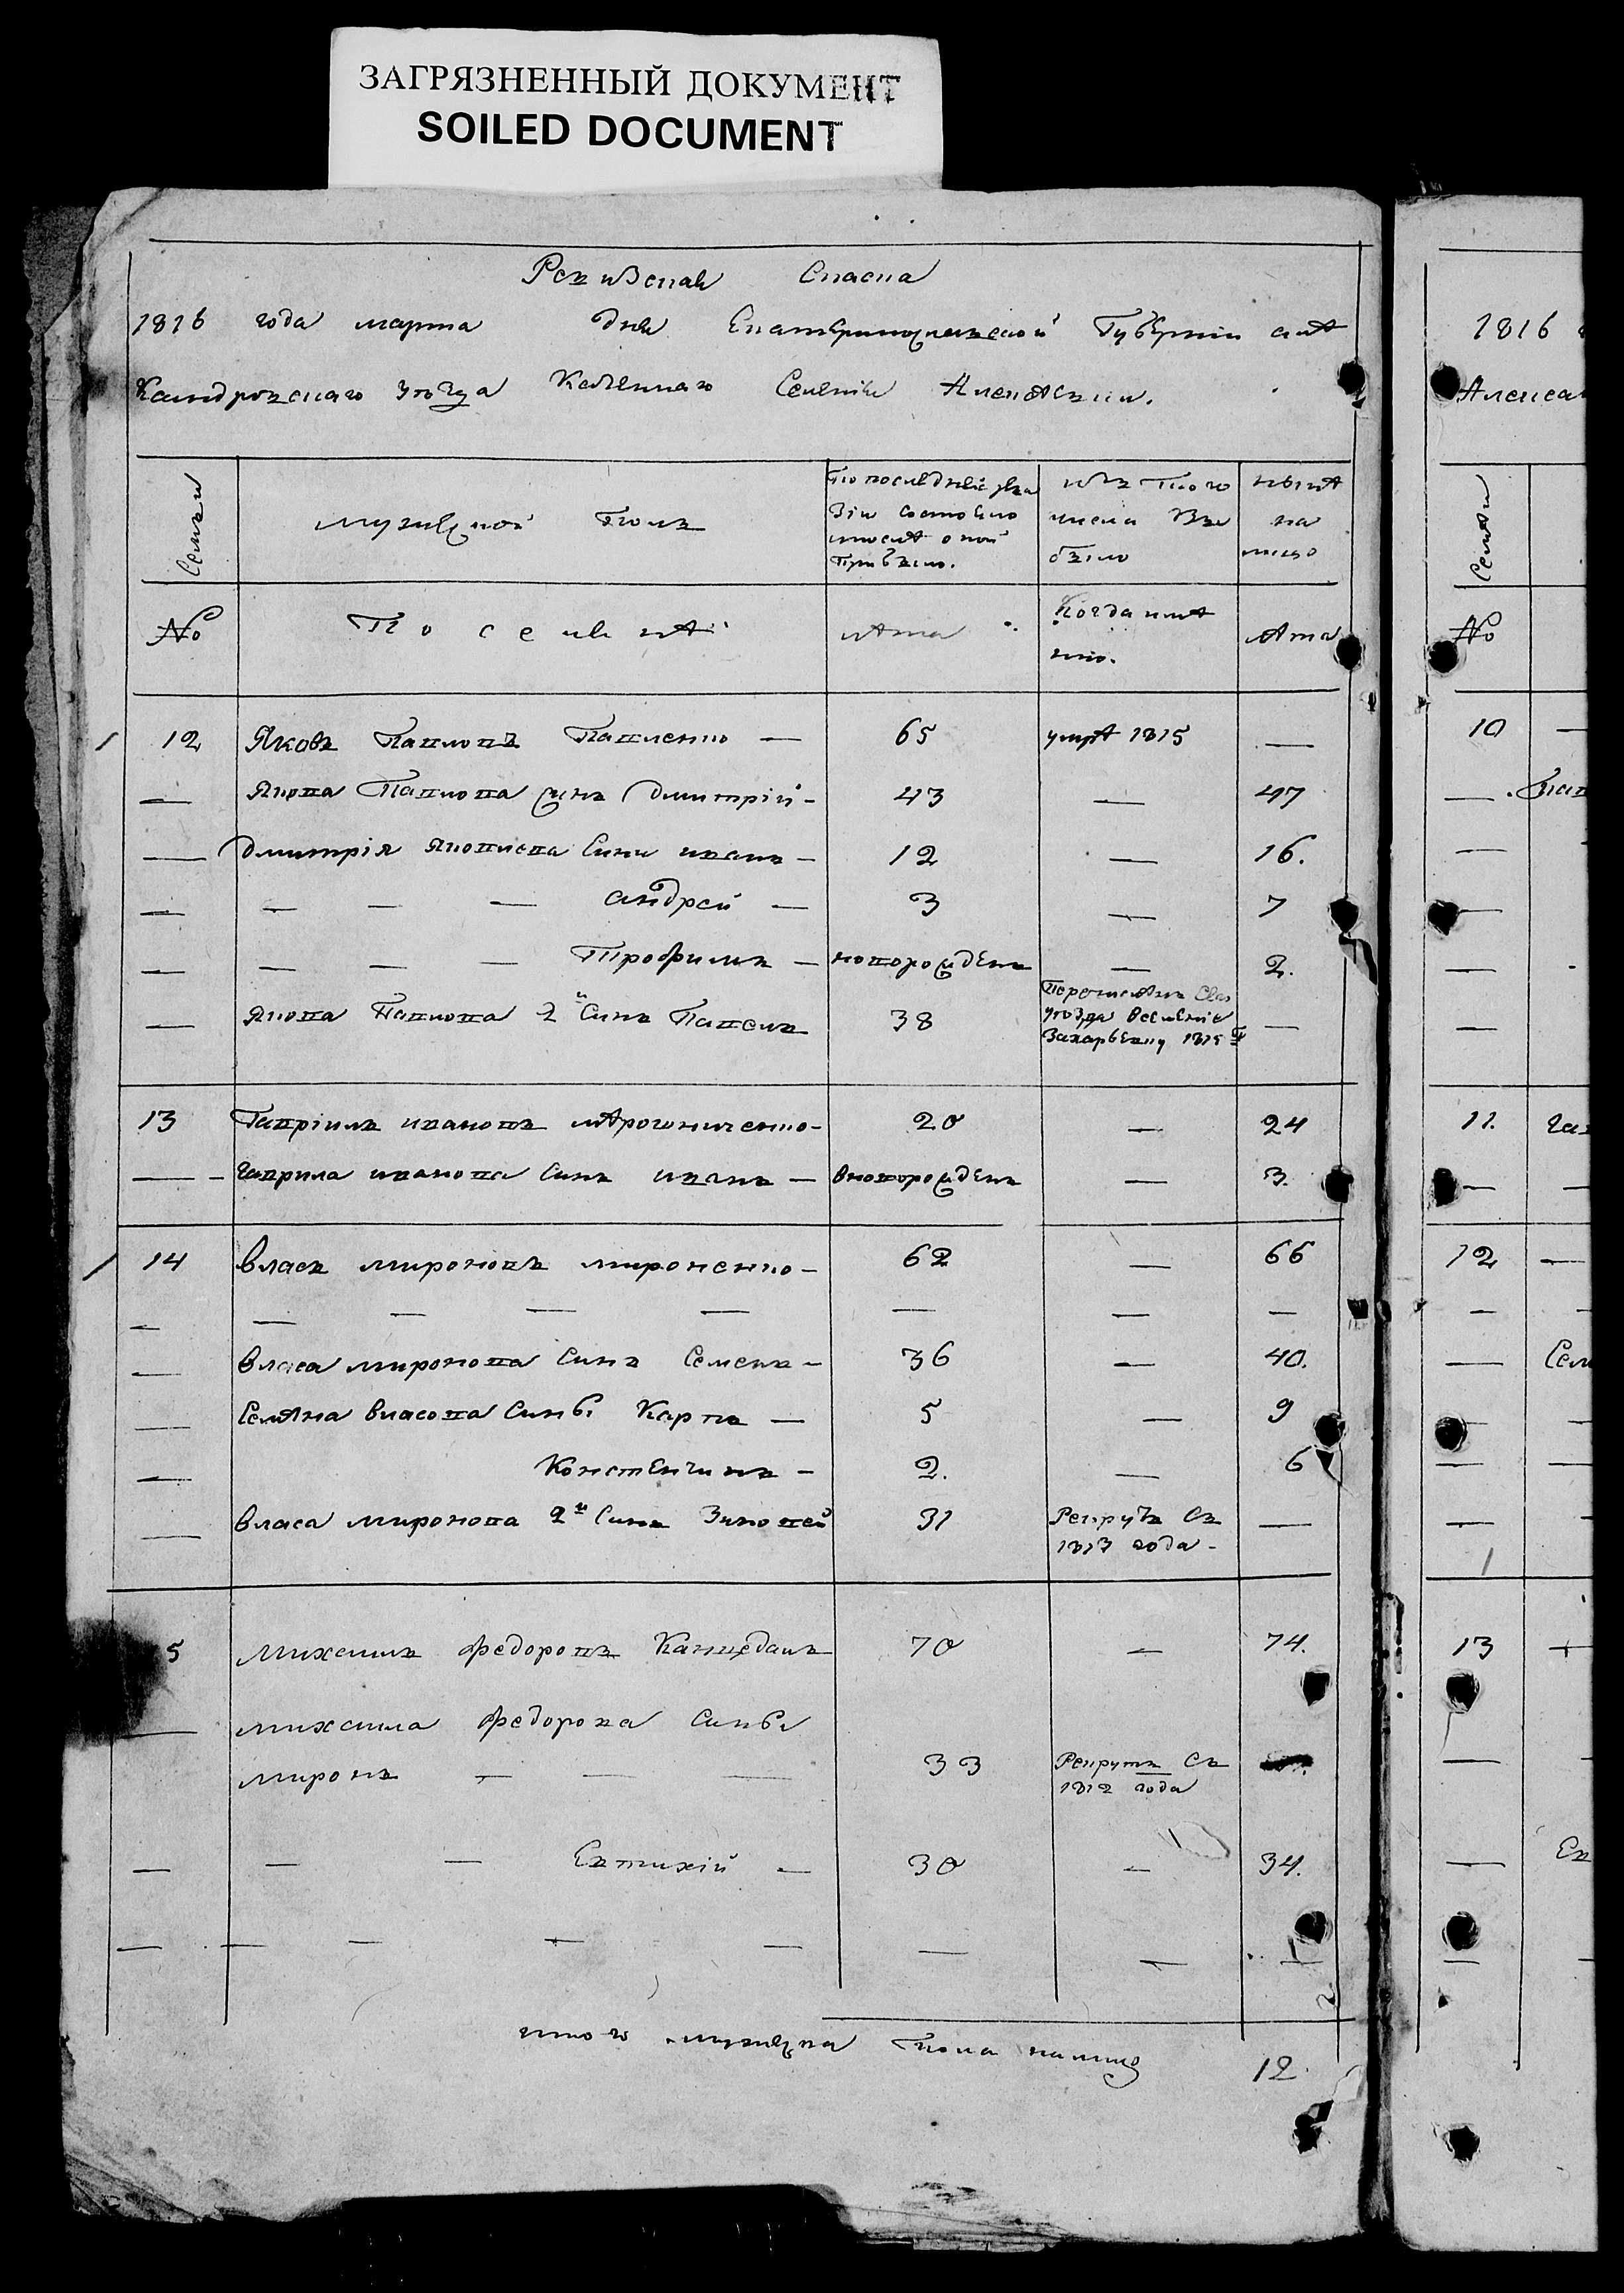 ЗАГРЯЗНЕННЫЙ ДОКУМЕНТ
SOILED DOCUMENT
Ревизская Сказка
1816 года марта дня Екатеринославской Губернии Але
ксандровского уезда Казенного Селения Алексеевки.
Семьи
мужеской полъ
По последней реви
зіи состояло
и после оной
прибыло.
изъ того
числа вы
было
ныне
на
лицо
№
Поселяне
лета
Когда имя
нно.
лета
12 Яковъ Павловъ Павленко — 65 умре 1815 —
— Якова Павлова сынъ Дмитрій - 43 — 47
— Дмитрія Яковлева Сыни иванъ - 12 — 16.
— — — — андрей — 3 — 7
— — — — Трофимъ — новорожденъ — 2.
— Якова Павлова 2й Сынъ Павелъ 38 —
уезда Вселение
Захарьевку 1815 г
13 Гаврiилъ ивановъ - 20 — 24
— Гаврила иванова Сынъ иванъ — вноворожденъ — 3.
14 власъ мироновъ мироненко - 62 — 66
— — — — — — — —
— власа миронова Сынъ Семенъ - 36 — 40.
— Семена власова Сины Карпъ — 5 — 9
— Констенчинъ - 2. — 6
— власа миронова 2й Сынъ Зиновей 31 Рекрутъ Съ —
1813 года -
5 михаилъ федоровъ 70 — 74.
— михаила федорова Сины
миронъ — — — 33 Рекрутъ Съ
1812 года
— — — Евтихій — 30 — 34.
— — — — — — —
итого мужеска пола налицо 12
1816
Алекса
Семьи
№
10 —
— Пав
11. Гав
12 —
— Сем
13
— Ев